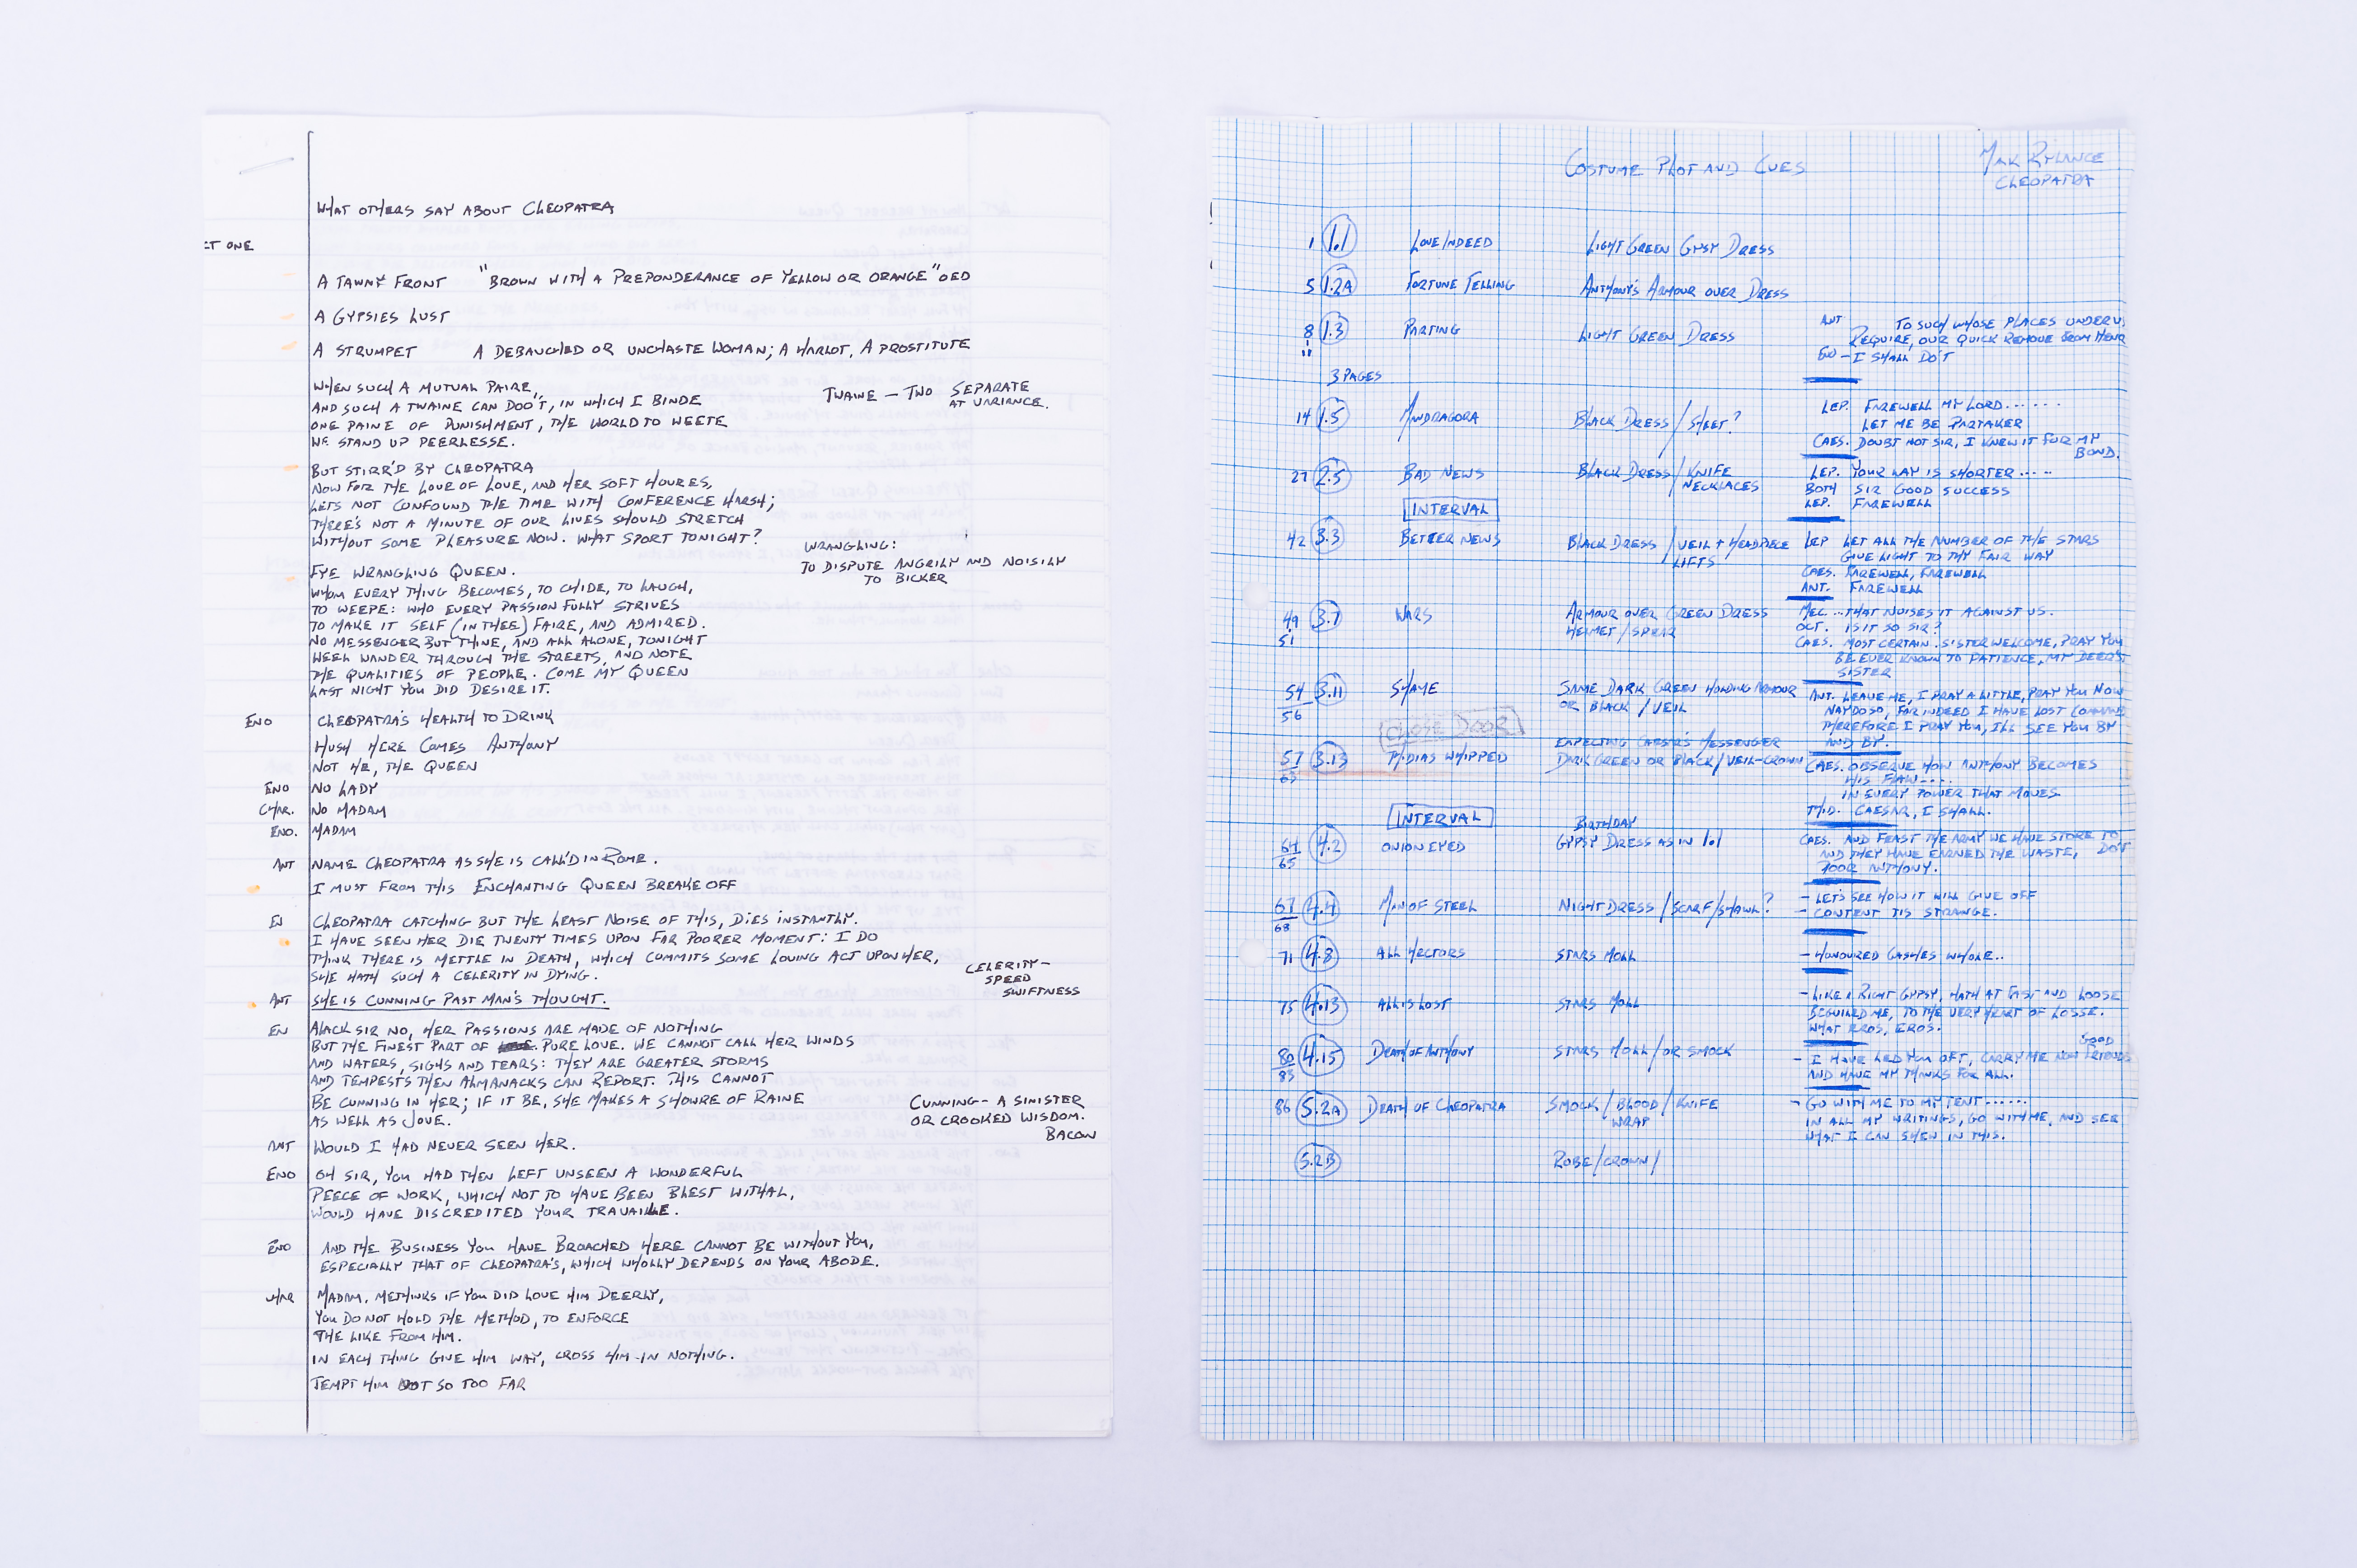 WHAT OTHERS SAY ABOUT CLEOPATRA
CT ONE
A TAWNY FRONT "BROWN WITH A PREPONDERANCE OF YELLOW OR ORANGE" OED
A GYPSIES LUST
A STRUMPET A DEBAUCHED OR UNCHASTE WOMAN; A HARLOT, A PROSTITUTE
WHEN SUCH A MUTUAL PAIRE,
AND SUCH A TWAINE CAN DOO'T, IN WHICH I BINDE
ONE PAINE OF PUNISHMENT, THE WORLD TO WEETE
WE STAND UP PEERLESSE.
TWAINE – TWO SEPARATE
AT VARIANCE.
BUT STIRR'D BY CLEOPATRA
NOW FOR THE LOVE OF LOVE, AND HER SOFT HOURES,
LETS NOT CONFOUND THE TIME WITH CONFERENCE HARSH;
THERE'S NOT A MINUTE OF OUR LIVES SHOULD STRETCH
WITHOUT SOME PLEASURE NOW. WHAT SPORT TONIGHT?
WRANGLING:
TO DISPUTE ANGRILY AND NOISILY
TO BICKER
FYE WRANGLING QUEEN.
WHOM EVERY THING BECOMES, TO CHIDE, TO LAUGH,
TO WEEPE: WHO EVERY PASSION FULLY STRIVES
TO MAKE IT SELF (IN THEE) FAIRE, AND ADMIRED.
NO MESSENGER BUT THINE, AND ALL ALONE, TONIGHT
WEEL WANDER THROUGH THE STREETS, AND NOTE
THE QUALITIES OF PEOPLE. COME MY QUEEN
LAST NIGHT YOU DID DESIRE IT.
ENO CLEOPATRA'S HEALTH TO DRINK
HUSH HERE COMES ANTHONY
NOT HE, THE QUEEN
ENO NO LADY
CHAR. NO MADAM
ENO. MADAM
ANT NAME CLEOPATRA AS SHE IS CALL'D IN ROME.
I MUST FROM THIS ENCHANTING QUEEN BREAKE OFF
EN CLEOPATRA CATCHING BUT THE LEAST NOISE OF THIS, DIES INSTANTLY.
I HAVE SEEN HER DIE TWENTY TIMES UPON FAR POORER MOMENT: I DO
THINK THERE IS METTLE IN DEATH, WHICH COMMITS SOME LOVING ACT UPON HER,
SHE HATH SUCH A CELERITY IN DYING.
CELERITY –
SPEED
SWIFTNESS
ANT SHE IS CUNNING PAST MAN'S THOUGHT.
EN ALACK SIR NO, HER PASSIONS ARE MADE OF NOTHING
BUT THE FINEST PART OF PURE LOVE. WE CANNOT CALL HER WINDS
AND WATERS, SIGHS AND TEARS: THEY ARE GREATER STORMS
AND TEMPESTS THEN ALMANACKS CAN REPORT. THIS CANNOT
BE CUNNING IN HER; IF IT BE, SHE MAKES A SHOWRE OF RAINE
AS WELL AS JOVE.
CUNNING – A SINISTER
OR CROOKED WISDOM.
BACON
ANT WOULD I HAD NEVER SEEN HER.
ENO OH SIR, YOU HAD THEN LEFT UNSEEN A WONDERFUL
PEECE OF WORK, WHICH NOT TO HAVE BEEN BLEST WITHAL,
WOULD HAVE DISCREDITED YOUR TRAVAILE.
ENO AND THE BUSINESS YOU HAVE BROACHED HERE CANNOT BE WITHOUT YOU,
ESPECIALLY THAT OF CLEOPATRA'S, WHICH WHOLLY DEPENDS ON YOUR ABODE.
CHAR MADAM, METHINKS IF YOU DID LOVE HIM DEERLY,
YOU DO NOT HOLD THE METHOD, TO ENFORCE
THE LIKE FROM HIM.
IN EACH THING GIVE HIM WAY, CROSS HIM IN NOTHING.
TEMPT HIM NOT SO TOO FAR
COSTUME PLOT AND CUES
MARK RYLANCE
CLEOPATRA
1 1.1 LOVE INDEED LIGHT GREEN GYPSY DRESS
5 1.2A FORTUNE TELLING ANTHONY'S ARMOUR OVER DRESS
8 1.3 PARTING LIGHT GREEN DRESS
11
3 PAGES
ANT. TO SUCH WHOSE PLACES UNDER U
REQUIRE, OUR QUICK REMOVE FROM HENC
ENO – I SHALL DO'T
14 1.5 MANDRAGORA BLACK DRESS / SHEET?
LEP. FAREWELL MY LORD......
LET ME BE PARTAKER
CAES. DOUBT NOT SIR, I KNEW IT FOR MY
BOND.
27 2.5 BAD NEWS BLACK DRESS / KNIFE
NECKLACES
LEP. YOUR WAY IS SHORTER.....
BOTH SIR GOOD SUCCESS
LEP. FAREWELL
INTERVAL
42 3.3 BETTER NEWS BLACK DRESS / VEIL + HEADPIECE
LIFTS
LEP LET ALL THE NUMBER OF THE STARS
GIVE LIGHT TO THY FAIR WAY
CAES. FAREWELL, FAREWELL
ANT. FAREWELL
49 3.7 WARS ARMOUR OVER GREEN DRESS
51 HELMET / SPEAR
MEC... THAT NOISES IT AGAINST US.
OCT. IS IT SO SIR?
CAES. MOST CERTAIN. SISTER WELCOME, PRAY YOU
BE EVER KNOWN TO PATIENCE, MY DEER'ST
SISTER
54 3.11 SHAME SAME DARK GREEN HOLDING ARMOUR
56 OR BLACK / VEIL
ANT. LEAVE ME, I PRAY A LITTLE, PRAY YOU NOW
NAY DO SO, FOR INDEED I HAVE LOST COMMAND
THEREFORE I PRAY YOU, ILL SEE YOU BY
AND BY.
CLOSE DOOR
57 3.13 THIDIAS WHIPPED EXPECTING CAESAR'S MESSENGER
63 DARK GREEN OR BLACK / VEIL-CROWN
CAES. OBSERVE HOW ANTHONY BECOMES
HIS FLAW....
IN EVERY POWER THAT MOVES
THID. CAESAR, I SHALL.
INTERVAL
64 4.2 ONION EYED BIRTHDAY
65 GYPSY DRESS AS IN 1.1
CAES. AND FEAST THE ARMY WE HAVE STORE TO
AND THEY HAVE EARNED THE WASTE, DO'T
POOR ANTHONY.
67 4.4 MAN OF STEEL NIGHT DRESS / SCARF / SHAWL?
68
– LET'S SEE HOW IT WILL GIVE OFF
– CONTENT TIS STRANGE.
71 4.8 ALL HECTORS STARS MOLL
– HONOURED GASHES WHOLE..
75 4.13 ALL IS LOST STARS MOLL
– LIKE A RIGHT GYPSY, HATH AT FAST AND LOOSE
BEGUILED ME, TO THE VERY HEART OF LOSSE.
WHAT EROS, EROS.
80 4.15 DEATH OF ANTHONY STARS MOLL / OR SMOCK
83
GOOD
– I HAVE LED YOU OFT, CARRY ME NOW FRIENDS
AND HAVE MY THANKS FOR ALL.
86 5.2A DEATH OF CLEOPATRA SMOCK / BLOOD / KNIFE
WRAP
– GO WITH ME TO MY TENT......
IN ALL MY WRITINGS, GO WITH ME, AND SEE
WHAT I CAN SHEW IN THIS.
5.2B ROBE / CROWN /